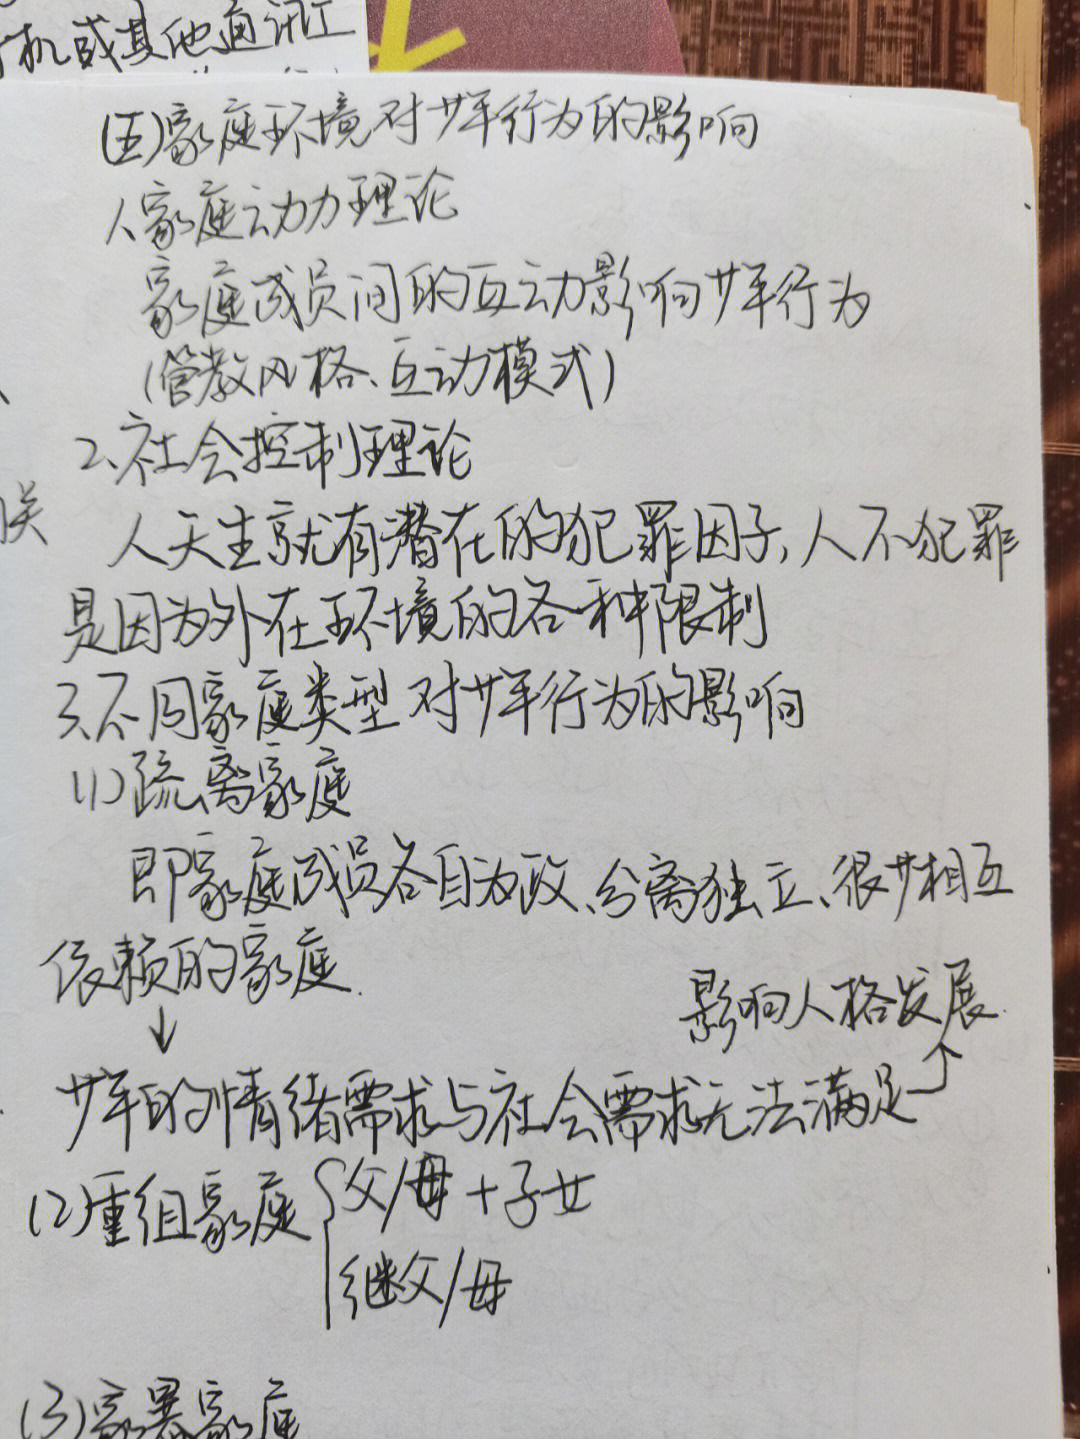 机或其他通讯工
(五)家庭环境对少年行为的影响
1、家庭动力理论
家庭成员间的互动影响少年行为
(管教风格、互动模式)
2、社会控制理论
关
人天生就有潜在的犯罪因子,人不犯罪
是因为外在环境的各种限制
3、不同家庭类型对少年行为的影响
(1)疏离家庭
即家庭成员各自为政、分离独立、很少相互
依赖的家庭.
↓
影响人格发展.
少年的情绪需求与社会需求无法满足
(2)重组家庭 父/母+子女
继父/母
(3)家暴家庭